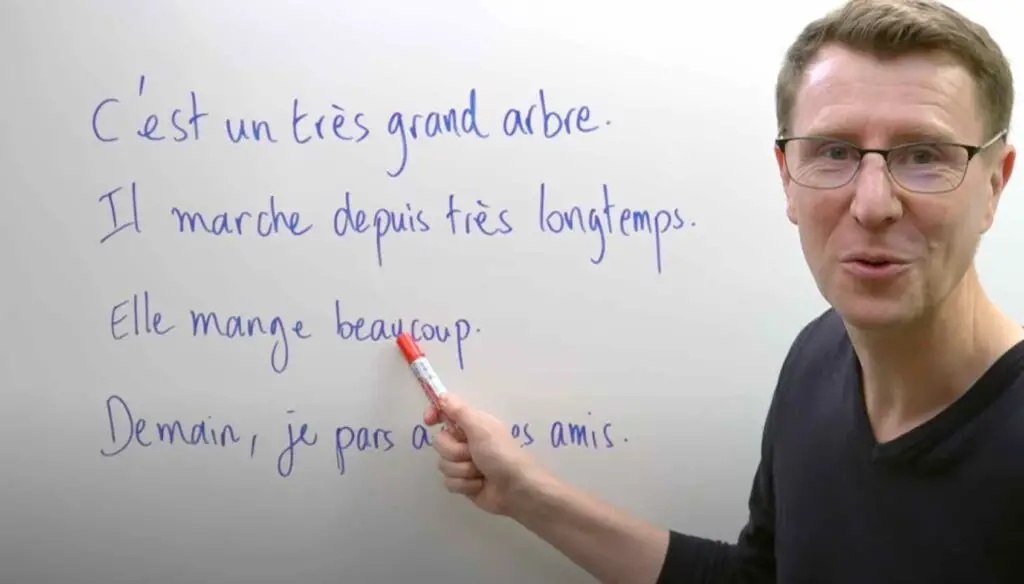 C'est un très grand arbre.
Il marche depuis très longtemps.
Elle mange beaucoup.
Demain, je pars amis.